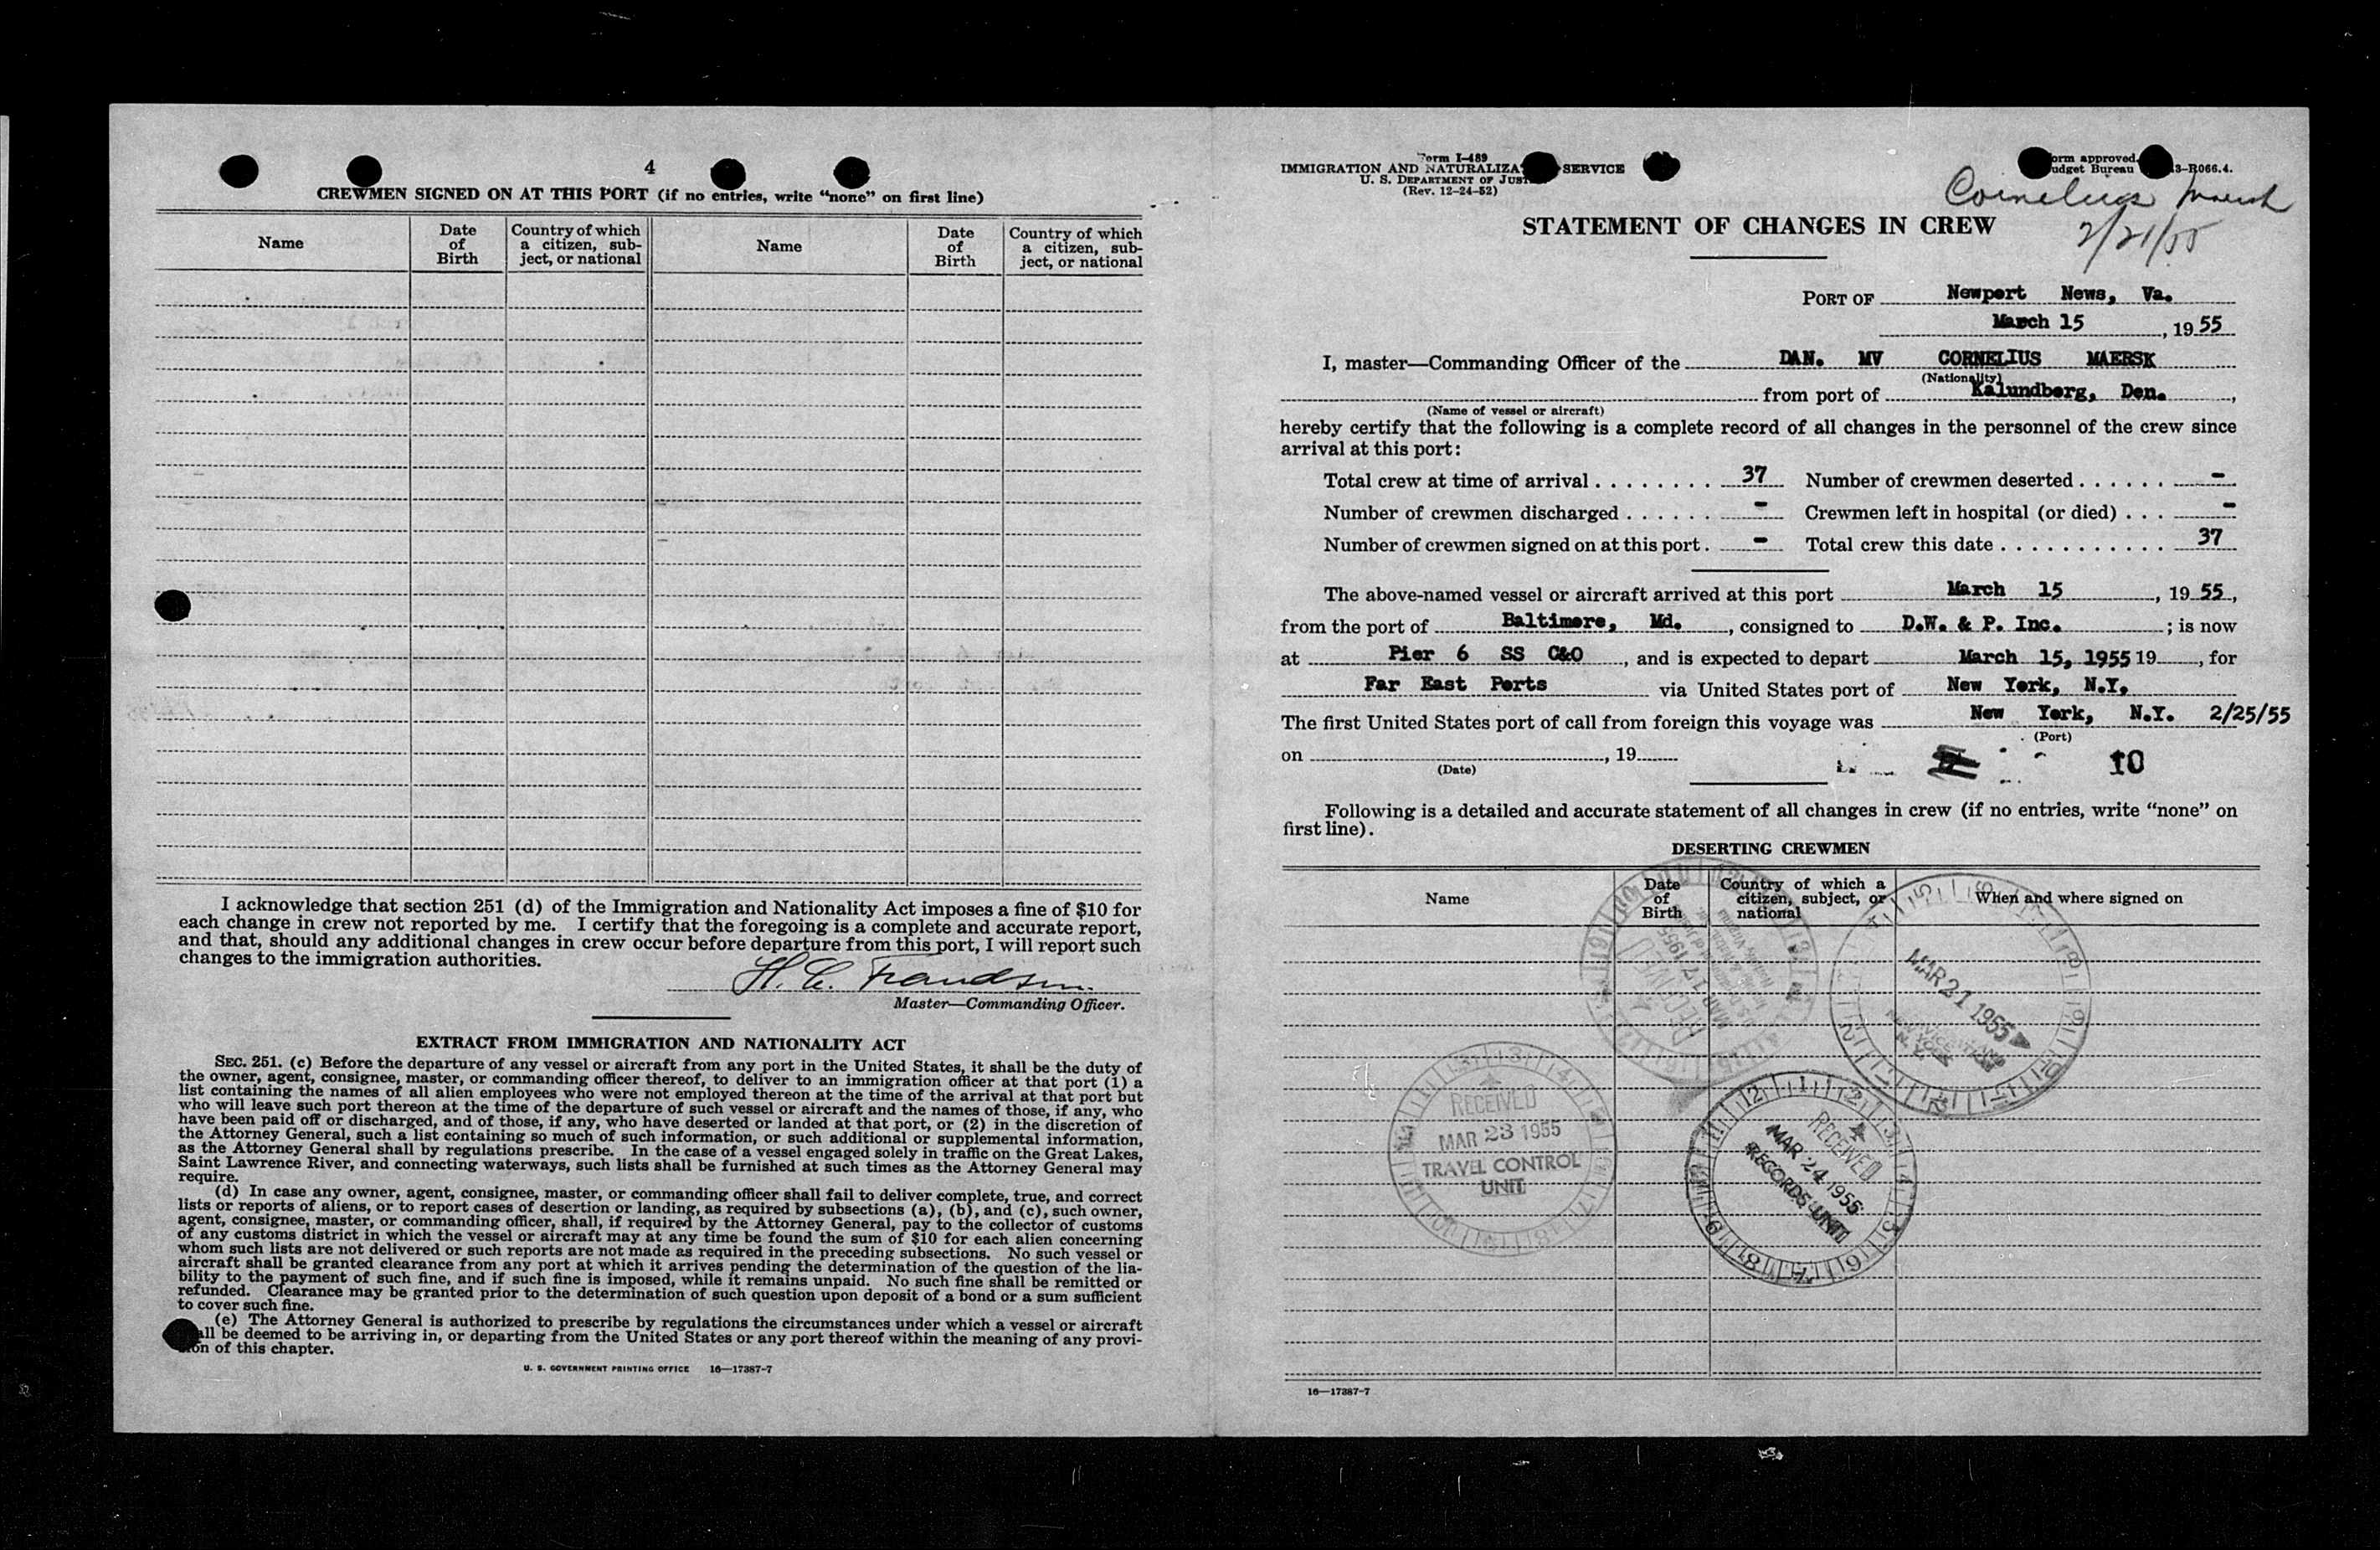 4
CREWMEN SIGNED ON AT THIS PORT (if no entries, write “none” on first line)
Name
Date of Birth
Country of which a citizen, subject, or national
Name
Date of Birth
Country of which a citizen, subject, or national
I acknowledge that section 251 (d) of the Immigration and Nationality Act imposes a fine of $10 for
each change in crew not reported by me. I certify that the foregoing is a complete and accurate report,
and that, should any additional changes in crew occur before departure from this port, I will report such
changes to the immigration authorities.
H. C. Frandsen
Master—Commanding Officer.
EXTRACT FROM IMMIGRATION AND NATIONALITY ACT
SEC. 251. (c) Before the departure of any vessel or aircraft from any port in the United States, it shall be the duty of
the owner, agent, consignee, master, or commanding officer thereof, to deliver to an immigration officer at that port (1) a
list containing the names of all alien employees who were not employed thereon at the time of the arrival at that port but
who will leave such port thereon at the time of the departure of such vessel or aircraft and the names of those, if any, who
have been paid off or discharged, and of those, if any, who have deserted or landed at that port, or (2) in the discretion of
the Attorney General, such a list containing so much of such information, or such additional or supplemental information,
as the Attorney General shall by regulations prescribe. In the case of a vessel engaged solely in traffic on the Great Lakes,
Saint Lawrence River, and connecting waterways, such lists shall be furnished at such times as the Attorney General may
require.
(d) In case any owner, agent, consignee, master, or commanding officer shall fail to deliver complete, true, and correct
lists or reports of aliens, or to report cases of desertion or landing, as required by subsections (a), (b), and (c), such owner,
agent, consignee, master, or commanding officer, shall, if required by the Attorney General, pay to the collector of customs
of any customs district in which the vessel or aircraft may at any time be found the sum of $10 for each alien concerning
whom such lists are not delivered or such reports are not made as required in the preceding subsections. No such vessel or
aircraft shall be granted clearance from any port at which it arrives pending the determination of the question of the lia-
bility to the payment of such fine, and if such fine is imposed, while it remains unpaid. No such fine shall be remitted or
refunded. Clearance may be granted prior to the determination of such question upon deposit of a bond or a sum sufficient
to cover such fine.
(e) The Attorney General is authorized to prescribe by regulations the circumstances under which a vessel or aircraft
all be deemed to be arriving in, or departing from the United States or any port thereof within the meaning of any provi-
sion of this chapter.
U. S. GOVERNMENT PRINTING OFFICE 16—17387-7
Form I-489
IMMIGRATION AND NATURALIZA SERVICE
U. S. DEPARTMENT OF JUST
(Rev. 12-24-52)
orm approved.
udget Bureau 3-R066.4.
Cornelius Maersk
2/21/55
STATEMENT OF CHANGES IN CREW
PORT OF Newport News, Va.
March 15, 1955
I, master—Commanding Officer of the DAN. MV CORNELIUS MAERSK
(Nationality)
from port of Kalundborg, Den.,
(Name of vessel or aircraft)
hereby certify that the following is a complete record of all changes in the personnel of the crew since
arrival at this port:
Total crew at time of arrival 37 Number of crewmen deserted -
Number of crewmen discharged - Crewmen left in hospital (or died) -
Number of crewmen signed on at this port - Total crew this date 37
The above-named vessel or aircraft arrived at this port March 15, 1955,
from the port of Baltimore, Md., consigned to D.W. & P. Inc.; is now
at Pier 6 SS C&O, and is expected to depart March 15, 1955 19, for
Far East Ports via United States port of New York, N.Y.
The first United States port of call from foreign this voyage was New York, N.Y. 2/25/55
(Port)
on , 19
(Date)
10
Following is a detailed and accurate statement of all changes in crew (if no entries, write “none” on
first line).
DESERTING CREWMEN
Name
Date of Birth
Country of which a citizen, subject, or national
When and where signed on
RECEIVED
MAR 17 1955
MAR 21 1955
N. Y.
RECEIVED
MAR 23 1955
TRAVEL CONTROL
UNIT
RECEIVED
MAR 24 1955
RECORDS UNIT
16—17387-7